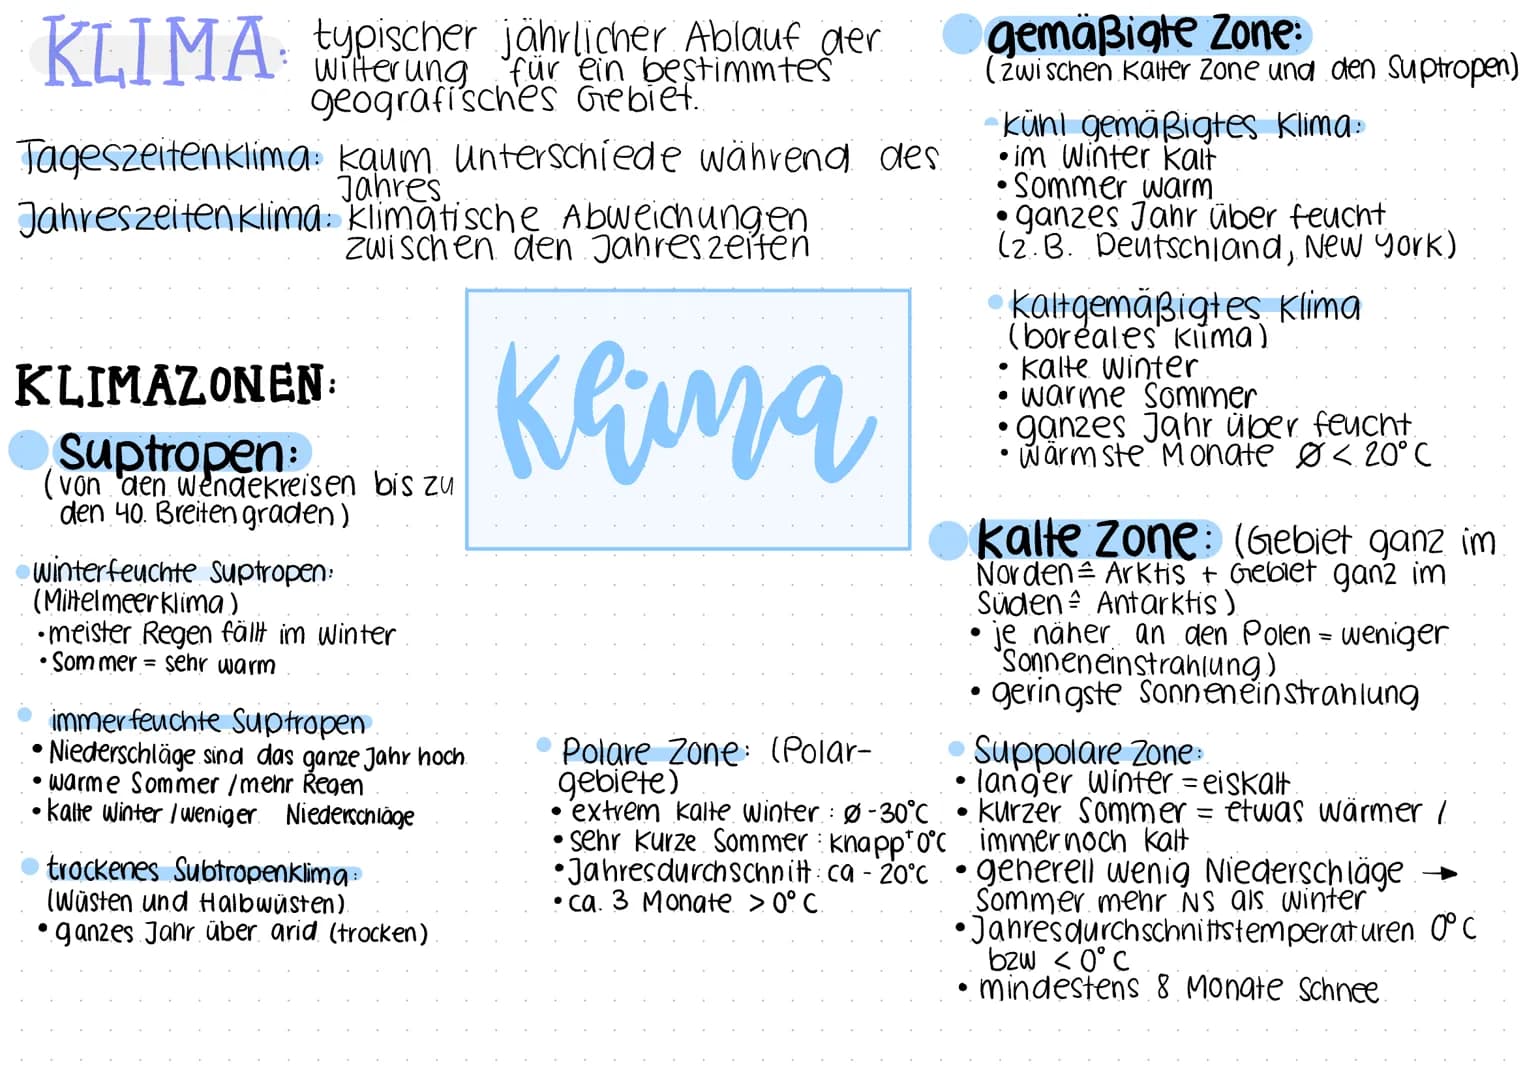 KLIMA: typischer jährlicher Ablauf der
witterung für ein bestimmtes
geografisches Gebiet.
Tageszeitenklima: kaum unterschiede während des
Jahres
Jahreszeitenklima: klimatische Abweichungen
zwischen den Jahreszeiten
Klima
KLIMAZONEN:
Suptropen:
(von den Wendekreisen bis zu
den 40. Breitengraden)
winterfeuchte Suptropen:
(Mittelmeerklima)
• meister Regen fällt im Winter
• Sommer = sehr warm
immerfeuchte Suptropen
• Niederschläge sind das ganze Jahr hoch
• warme Sommer / mehr Regen
• kalte Winter / weniger Niederschläge
trockenes Subtropenklima:
(Wüsten und Halbwüsten)
• ganzes Jahr über arid (trocken)
Polare Zone: (Polar-
gebiete)
• extrem kalte winter : Ø -30°C
• sehr kurze Sommer : knapp + 0°C
• Jahresdurchschnitt: ca - 20°C
• ca. 3 Monate > 0°C
gemäßigte Zone:
(zwischen kalter Zone und den Suptropen)
kühl gemäßigtes Klima:
• im Winter kalt
• Sommer warm
• ganzes Jahr über feucht
(z.B. Deutschland, New York)
kaltgemäßigtes Klima
(boreales Klima)
• kalte winter
• warme Sommer
• ganzes Jahr über feucht
• wärmste Monate Ø < 20°C
kalte Zone: (Gebiet ganz im
Norden ≙ Arktis + Gebiet ganz im
Süden ≙ Antarktis)
• je näher an den Polen = weniger
Sonneneinstrahlung)
• geringste Sonneneinstrahlung
Suppolare Zone:
• langer Winter = eiskalt
• kurzer Sommer = etwas wärmer /
immernoch kalt
• generell wenig Niederschläge →
Sommer mehr NS als winter
• Jahresdurchschnittstemperaturen 0°C
bzw < 0°C
• mindestens 8 Monate Schnee